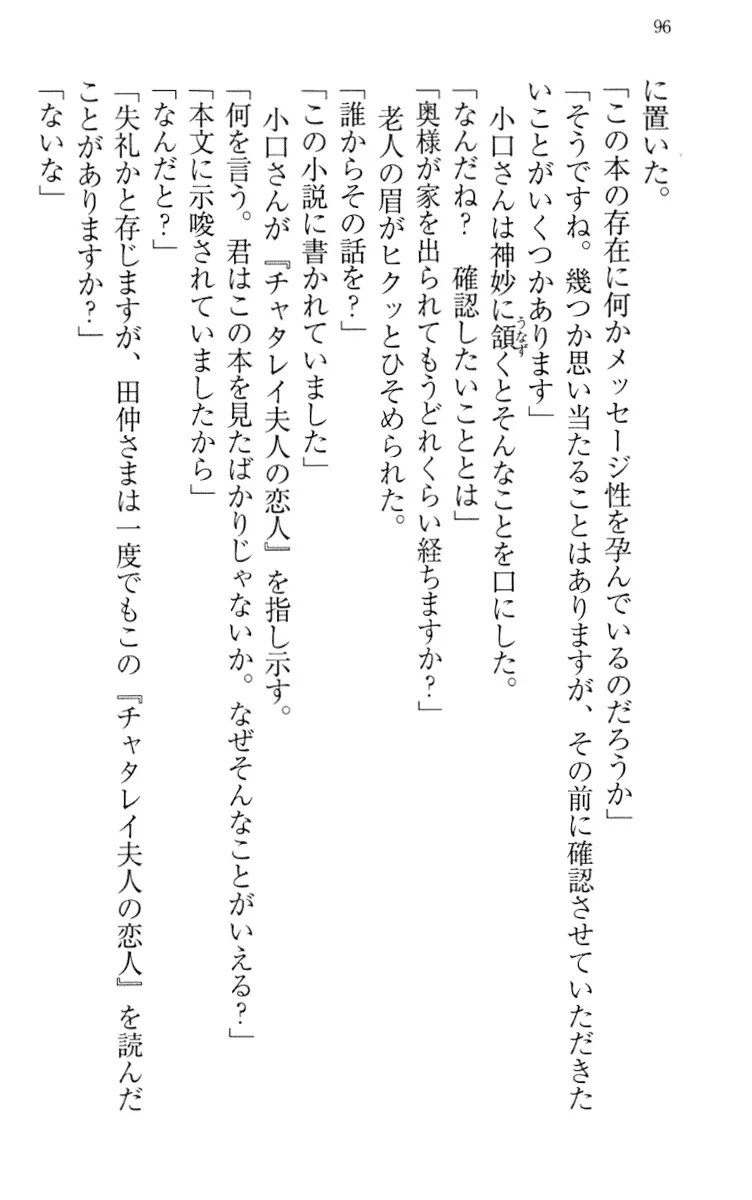 96
に置いた。
「この本の存在に何かメッセージ性を孕んでいるのだろうか」
「そうですね。幾つか思い当たることはありますが、その前に確認させていただきた
いことがいくつかあります」
小口さんは神妙に頷くとそんなことを口にした。
「なんだね？　確認したいこととは」
「奥様が家を出られてもうどれくらい経ちますか？」
老人の眉がヒクッとひそめられた。
「誰からその話を？」
「この小説に書かれていました」
小口さんが『チャタレイ夫人の恋人』を指し示す。
「何を言う。君はこの本を見たばかりじゃないか。なぜそんなことがいえる？」
「本文に示唆されていましたから」
「なんだと？」
「失礼かと存じますが、田仲さまは一度でもこの『チャタレイ夫人の恋人』を読んだ
ことがありますか？」
「ないな」